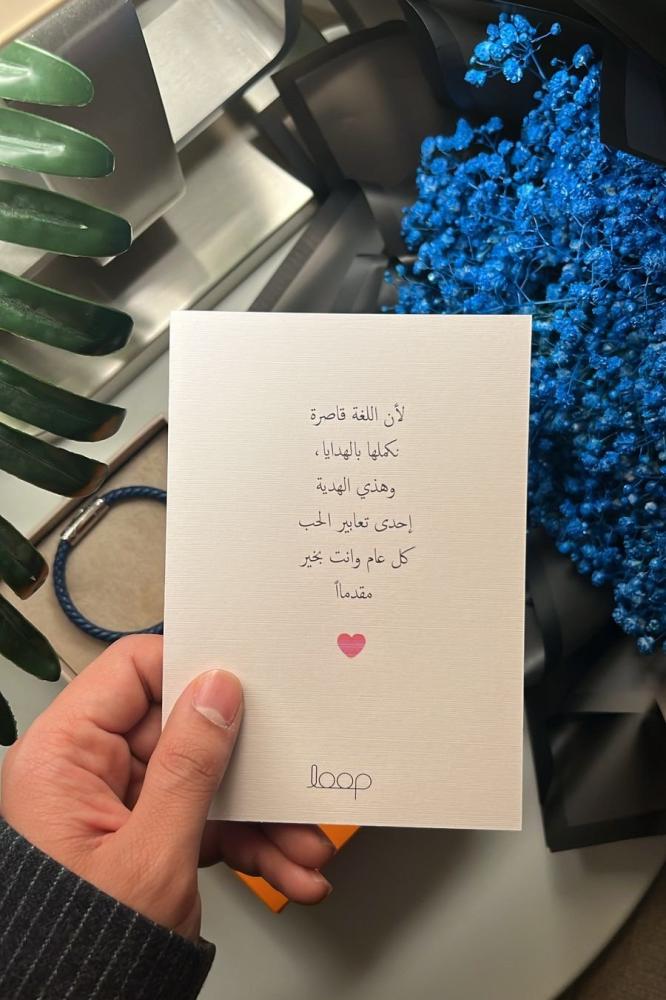 لأن اللغة قاصرة
نكملها بالهدايا،
وهذي الهدية
إحدى تعابير الحب
كل عام وانت بخير
مقدماً
loop